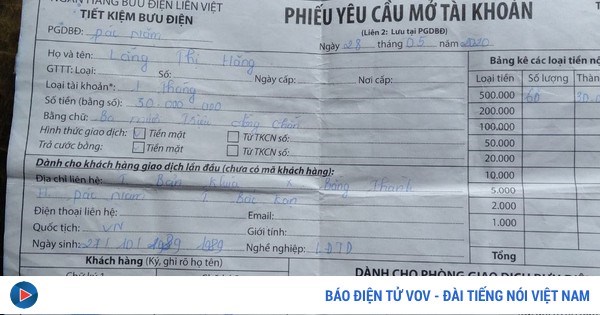 NGÂN HÀNG BƯU ĐIỆN LIÊN VIỆT
TIẾT KIỆM BƯU ĐIỆN
PGDBĐ: pác Nặm
PHIẾU YÊU CẦU MỞ TÀI KHOẢN
(Liên 2: Lưu tại PGDBĐ)
Ngày 28 tháng 05 năm 2020
Họ và tên: Lăng Thị Hằng
GTTT: Loại: Số: Ngày cấp: Nơi cấp:
Loại tài khoản*: 1 tháng
Số tiền (bằng số): 30 000 000
Bằng chữ: Ba mươi Triệu đồng chẵn
Hình thức giao dịch: Tiền mặt Từ TKCN số:
Trả cước bằng: Tiền mặt Từ TKCN số:
Dành cho khách hàng giao dịch lần đầu (chưa có mã khách hàng):
Địa chỉ liên hệ: T Bản Khúa X Bằng Thành
H pác Nặm T Bắc Kạn
Điện thoại liên hệ: Email:
Quốc tịch: VN Giới tính:
Ngày sinh: 27/10/1989 1989 Nghề nghiệp: LĐTD
Khách hàng (Ký, ghi rõ họ tên)
Chữ ký 1
Bảng kê các loại tiền
Loại tiền Số lượng Thàn
500.000 60
200.000
100.000
50.000
20.000
10.000
5.000
2.000
1.000
Tổng
DÀNH CHO PHÒNG GIAO DỊCH BƯU ĐIỆN
BÁO ĐIỆN TỬ VOV - ĐÀI TIẾNG NÓI VIỆT NAM